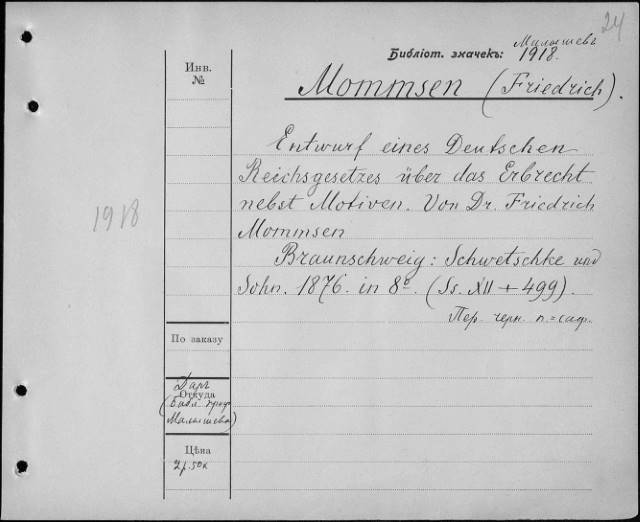 24
Малышевъ
Библіот. значекъ: 1918.
Инв.
№
Mommsen (Friedrich).
Entwurf eines Deutschen
Reichsgesetzes über das Erbrecht
nebst Motiven. Von Dr. Friedrich
Mommsen
1918
Braunschweig: Schwetschke und
Sohn. 1876. in 8º. (Ss. XII + 499).
Пер. черн. п.=саф.
По заказу
Даръ
Откуда
(Библ. проф.
Малышева)
Цѣна
2 р. 50 к